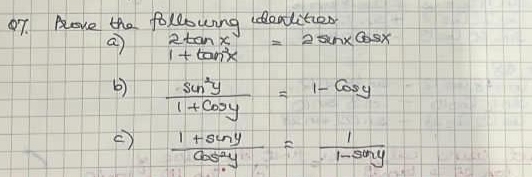 Q7. Prove the following identities
a) 2tanx / 1 + tan²x = 2 sinx Cosx
b) sin²y / 1 + Cosy = 1 - Cosy
c) 1 + siny / Cos²y = 1 / 1 - siny